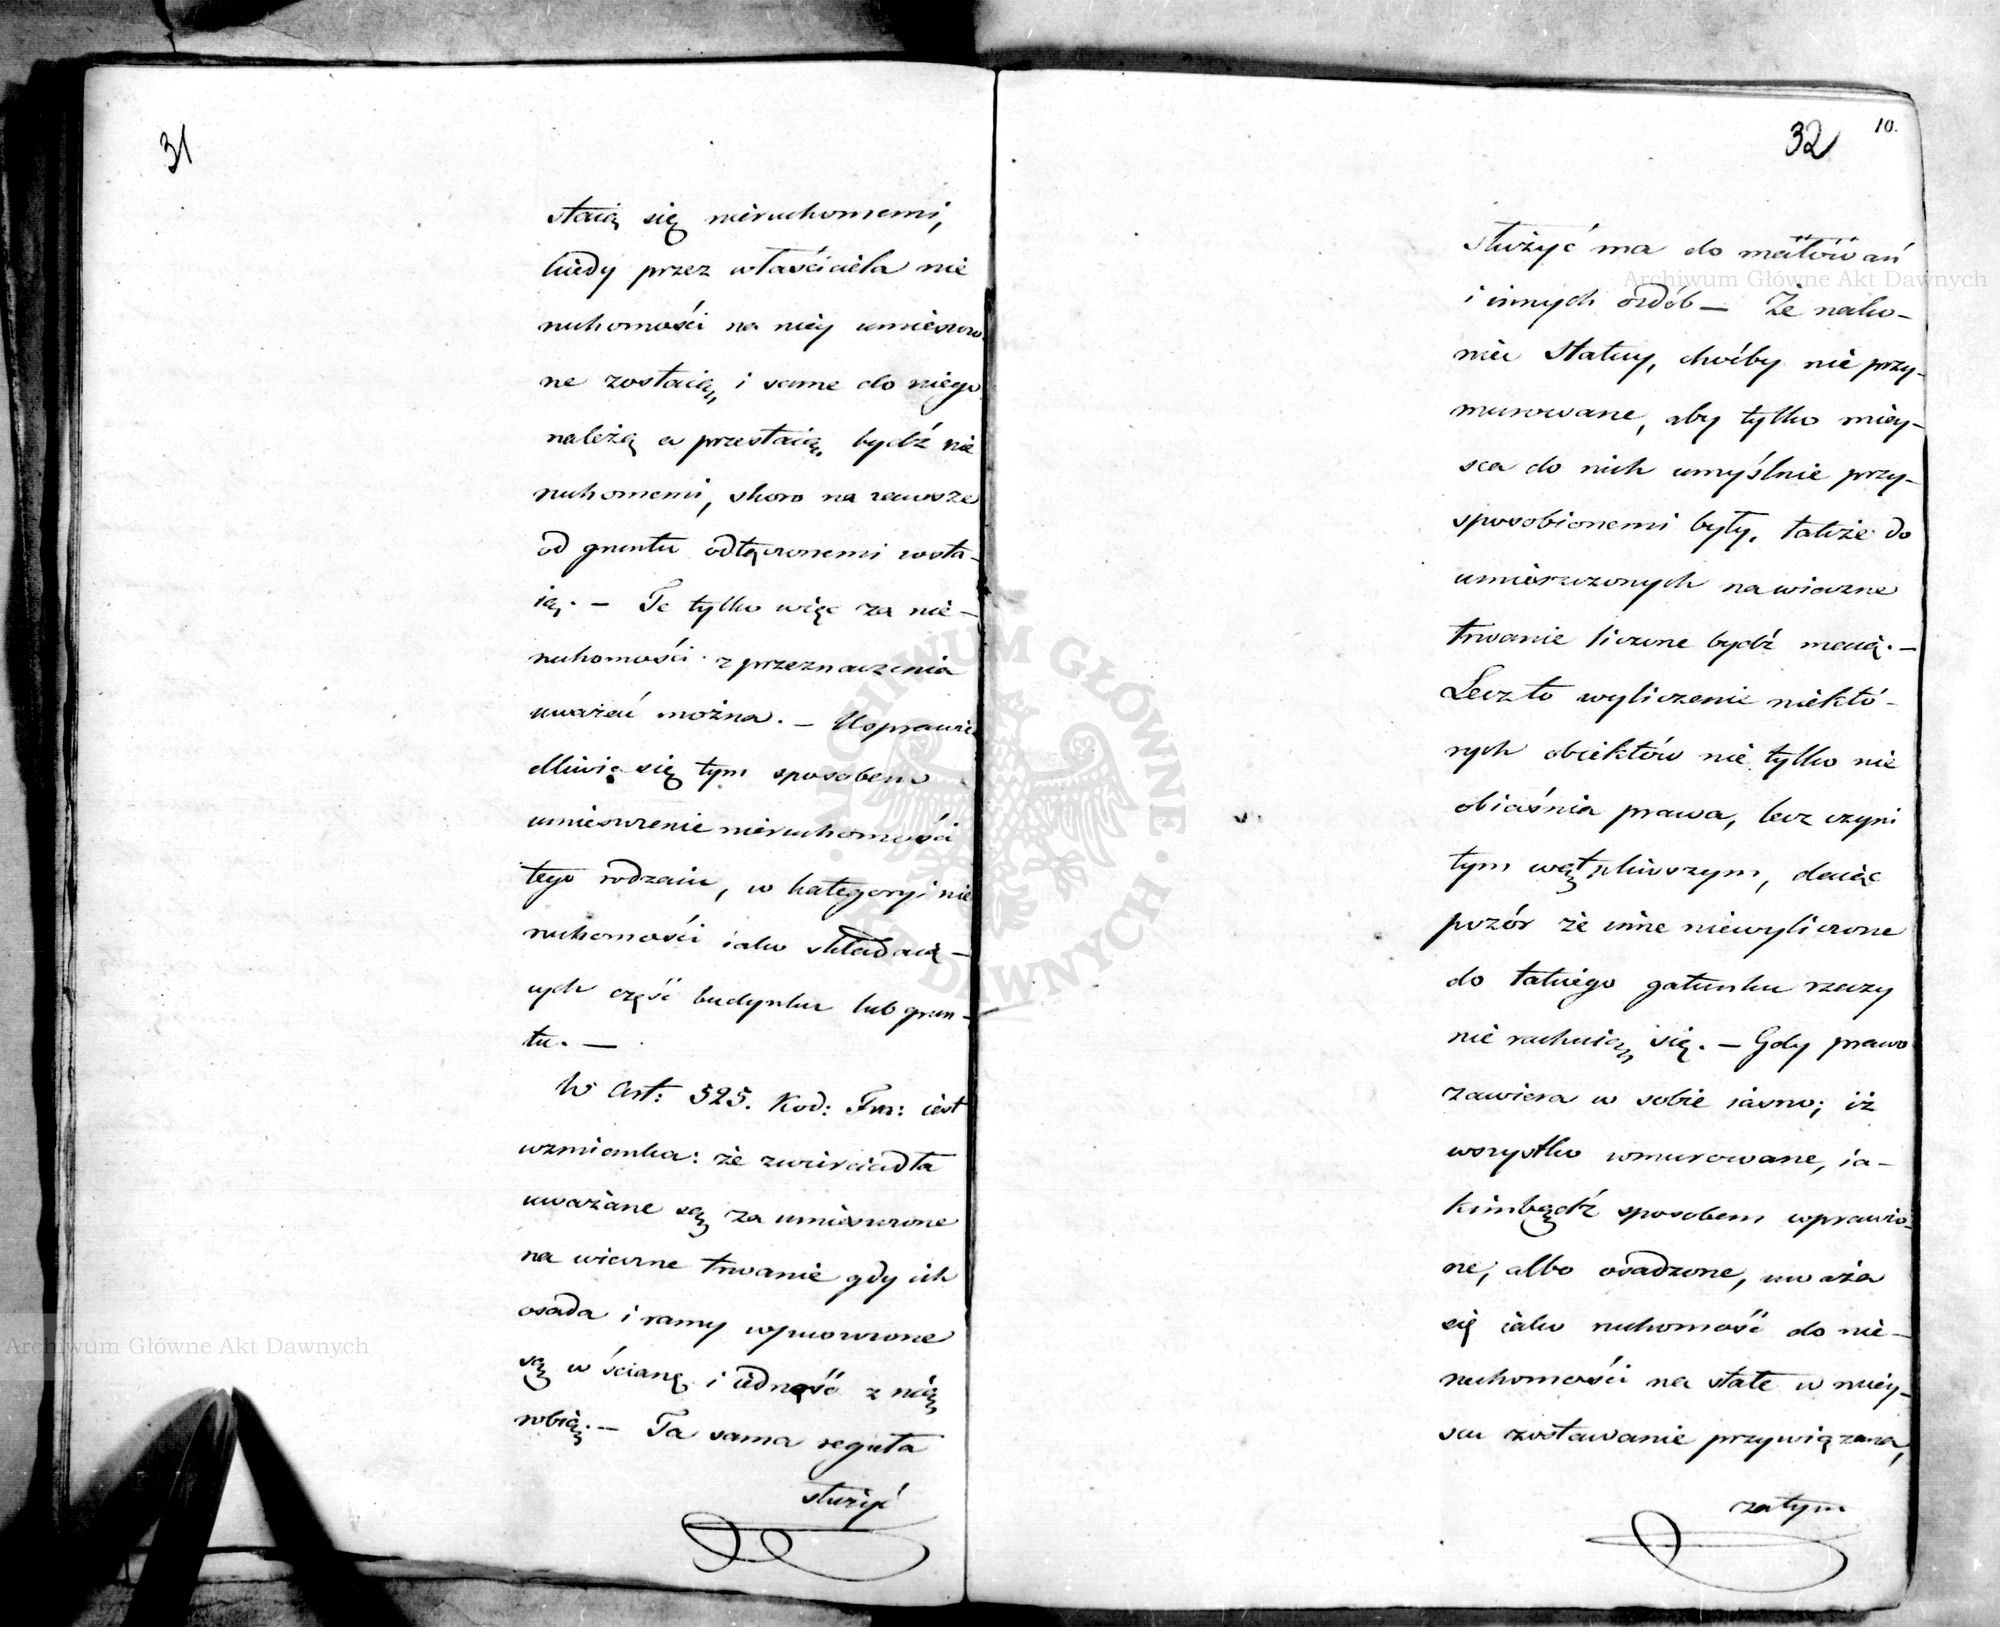 31
staią się nieruchomemi,
kiedy przez właściciela nie
ruchomości na niey umieszczo
ne zostaią, i same do niego
należą a przestaią, bydź nie
ruchomemi, skoro na zawsze
od gruntu odłączonemi zosta-
ią. — Te tylko więc za nie-
ruchomości z przeznaczenia
uważać można. — Usprawie
dliwia się tym sposobem
umieszczenie nieruchomości
tego rodzaiu, w kategoryi nie
ruchomości iako składaią-
cych część budynku lub grun-
tu. —
W Art: 525. Kod: Fra: iest
wzmianka: że zwierciadła
uważane są za umieszczone
na wieczne trwanie gdy ich
osada i ramy wpuszczone
są w ścianę i iedność z nią
robią. — Ta sama reguła
służyć
32
10.
służyć ma do malowań
i innych ozdób — Że nako-
niec Statuy, choćby nie przy-
murowane, aby tylko miey-
sca do nich umyślnie przy-
sposobionemi były, także do
umieszczonych na wieczne
trwanie liczone bydź maią. —
Lecz to wyliczenie niektó-
rych obiektów nie tylko nie
obiaśnia prawa, lecz czyni
tym wątpliwszym, daiąc
pozór że inne niewyliczone
do takiego gatunku rzeczy
nie rachuią, się. — Gdy prawo
zawiera w sobie iasno; iż
wszystko wmurowane, ia-
kimbądź sposobem wprawio-
ne, albo osadzone, uważa
się iako ruchomość do nie-
ruchomości na stałe w miey-
scu zostawanie przywiązana,
zatym
Archiwum Główne Akt Dawnych
Archiwum Główne Akt Dawnych
ARCHIWUM GŁÓWNE AKT DAWNYCH